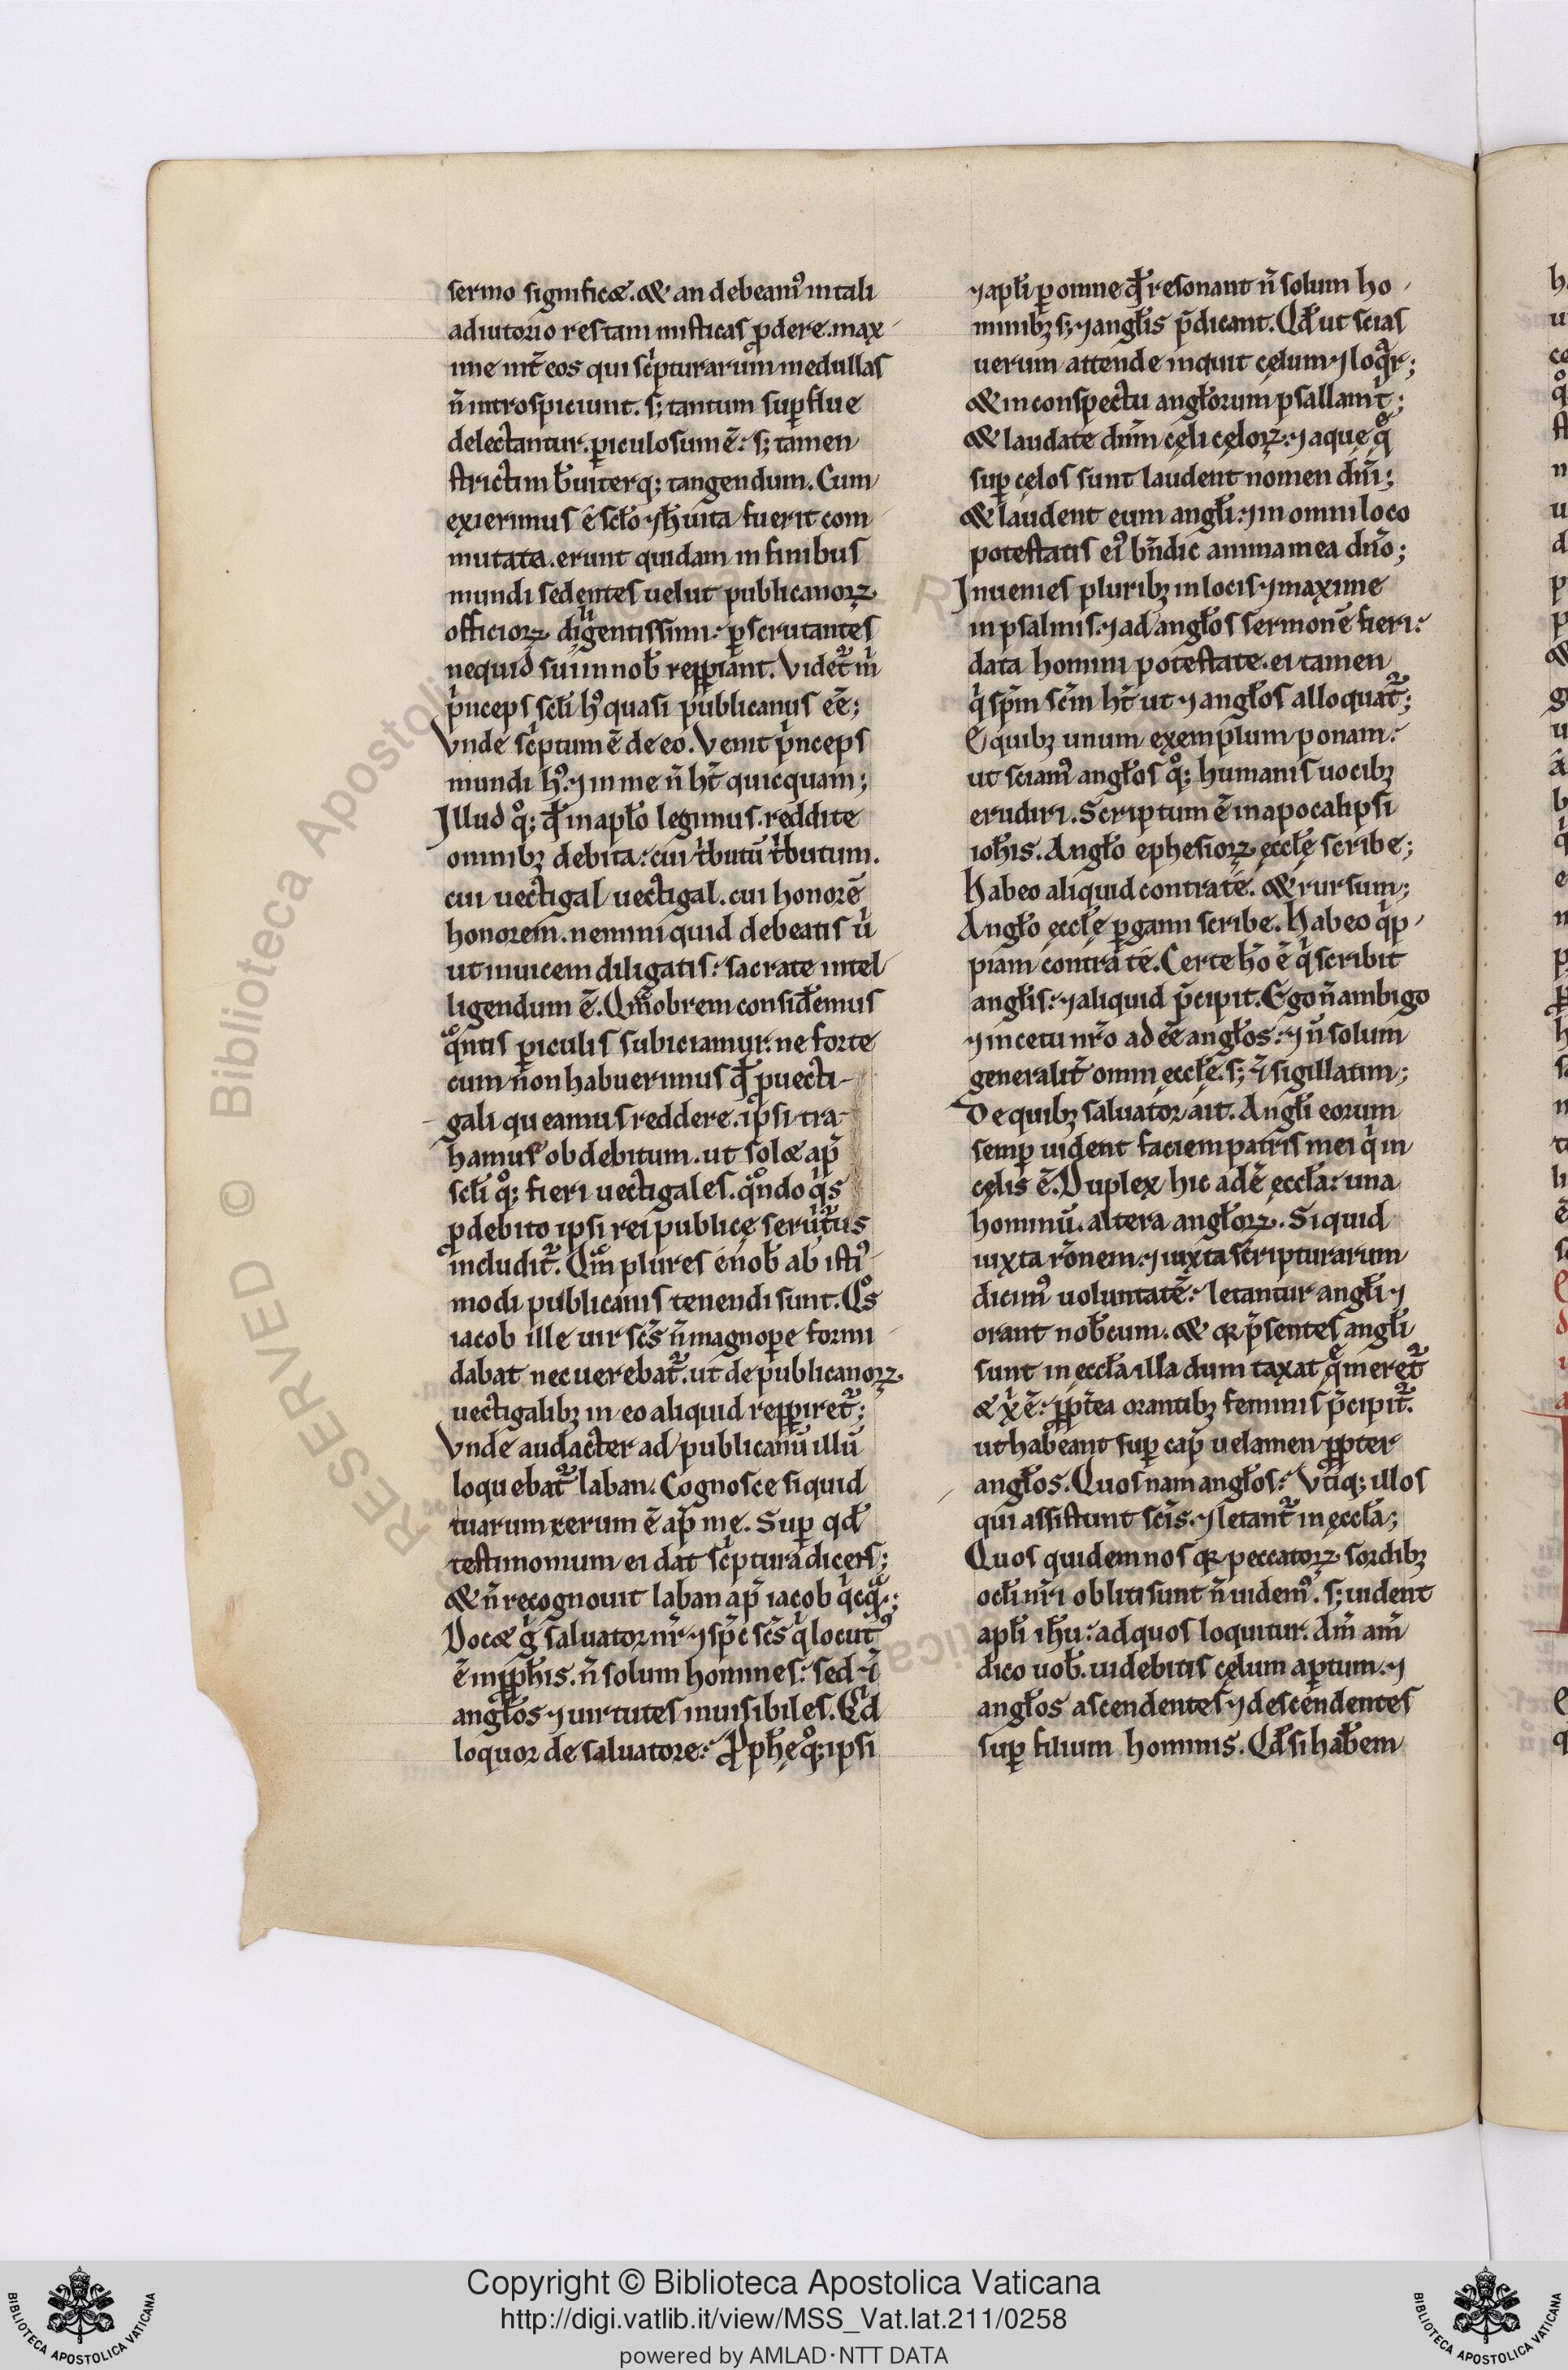 sermo significæ. & an debeamꝰ in tali
adiutorio res tam misticas ꝓdere. max
ime int̄ eos qui sc̍pturarum medullas
n̄ introspiciunt. s; tantum suꝑflue
delectantur. ꝑiculosum ē: s; tamen
strictim b̄uiterq; tangendum. Cum
exierimus é scło ⁊ h̄ uita fuerit com
mutata. erunt quidam in finibus
mundi sedentes uelut publicanoꝝ
officioꝝ diligentissimi: ꝑscrutantes
nequid sui in nob̄ repꝑiant. Videt᷑ m̍
p̍nceps scłi hꝰ quasi publicanus eē;
Vnde sc̍ptum ē de eo. Venit p̍nceps
mundi hꝰ. ⁊ in me n̄ ht̄ quicquam;
Illud qͦ; qđ in apło legimus. reddite
omnibꝫ debita: cui t̍butū t̍butum.
cui uectigal uectigal. cui honorē
honorem. nemini quid debeatis n̍
ut inuicem diligatis: sacrate intel
ligendum ē. Qm̄obrem considemus
qͣntis ꝑiculis subiciamur. ne forte
cum non habuerimus qđ ꝓ uecti-
gali queamus reddere. ipsi tra-
hamur ob debitum. ut solæ ap̄
scłi qͦ; fieri uectigales. qͣndo q̍s
ꝓ debito ipsi rei publicę seruit᷑us
includit᷑. Qͣm plures é nob̄ ab istiꝰ
modi publicanis tenendi sunt. Qͦs
iacob ille uir scs̄ n̄ magnopere formi
dabat nec uerebat᷑. ut de publicanoꝝ
uectigalibꝫ in eo aliquid repꝑiret᷑;
Vnde audacter ad publicanū illū
loquebat᷑ laban. Cognosce siquid
tuarum rerum ē ap̄ me. Suꝑ qđ
testimonium ei dat sc̍ptura dicens;
& n̄ recognouit laban ap̄ iacob q̍cqͣ;
Docæ g̍ saluator nr̄ ⁊ spc̄ scs̄ q̍ locutꝰ
ē in ꝓphis. n̄ solum homines: sed ⁊
angłos ⁊ uirtutes inuisibiles. Qͥd
loquor de saluatore: Ꝓphę qͦ; ipsi
⁊ apłi ꝑ omne qđ resonant n̄ solum ho
minibꝫ s; ⁊ angłis p̄dicant. Qđ ut scias
uerum attende inquit cęlum ⁊ loqͣr;
& in conspectu angłorum psallam t̍;
& laudate dnm̄ cęli cęloꝝ: ⁊ aquę qͤ
suꝑ cęlos sunt laudent nomen dni̅;
& laudent eum angłi: ⁊ in omni loco
potestatis eiꝰ bn̄dic anima mea dno̅;
Inuenies pluribꝫ in locis ⁊ maxime
in psalmis: ⁊ ad angłos sermonē fieri:
data homini potestate. ei tamen
q̍ spm̄ scm̄ ht̄ ut ⁊ angłos alloquat᷑;
E quibꝫ unum exemplum ponam:
ut sciamꝰ angłos qͦ; humanis uocibꝫ
erudiri. Scriptum ē in apocalipsi
ioh̄is. Angło ephesioꝝ ęccłę scribe;
Habeo aliquid contra te. & rursum;
Angło ęccłę ꝑgami scribe. Habeo q̍p
piam contra te. Certe ho̅ ē q̍ scribit
angłis: ⁊ aliquid p̄cipit. Ego n̄ ambigo
⁊ in cetu nr̄o adeē angłos: ⁊ n̄ solum
generalit̄ omni ęccłę. s; ⁊ sigillatim;
De quibꝫ saluator ait. Angłi eorum
semꝑ uident faciem patris mei q̍ in
cęlis ē. Duplex hic adē ęccła: una
hominū. altera angłoꝝ. Siquid
iuxta rōnem ⁊ iuxta scripturarum
dicimꝰ uoluntatē: letantur angłi ⁊
orant nob̄cum. & qꝛ p̄sentes angłi
sunt in ęccła illa dum taxat qͤ meret᷑
æ xp̄i ē: ꝓpt̄ea orantibꝫ feminis p̄cipit᷑.
ut habeant suꝑ cap̄ uelamen ꝓpter
angłos. Quos nam angłos: Vtiq; illos
qui assistunt scis̄. ⁊ letant᷑ in ęccła;
Quos quidem nos qꝛ peccatoꝝ sordibꝫ
ocłi nr̄i obliti sunt n̄ uidemꝰ. s; uident
apłi ih̄u: ad quos loquitur. am̄ am̄
dico uob̄. uidebitis cęlum aꝑtum. ⁊
angłos ascendentes ⁊ descendentes
suꝑ filium hominis. Qđ si habem
RESERVED © Biblioteca Apostolica
Copyright © Biblioteca Apostolica Vaticana
http://digi.vatlib.it/view/MSS_Vat.lat.211/0258
powered by AMLAD·NTT DATA
BIBLIOTECA APOSTOLICA VATICANA
BIBLIOTECA APOSTOLICA VATICANA